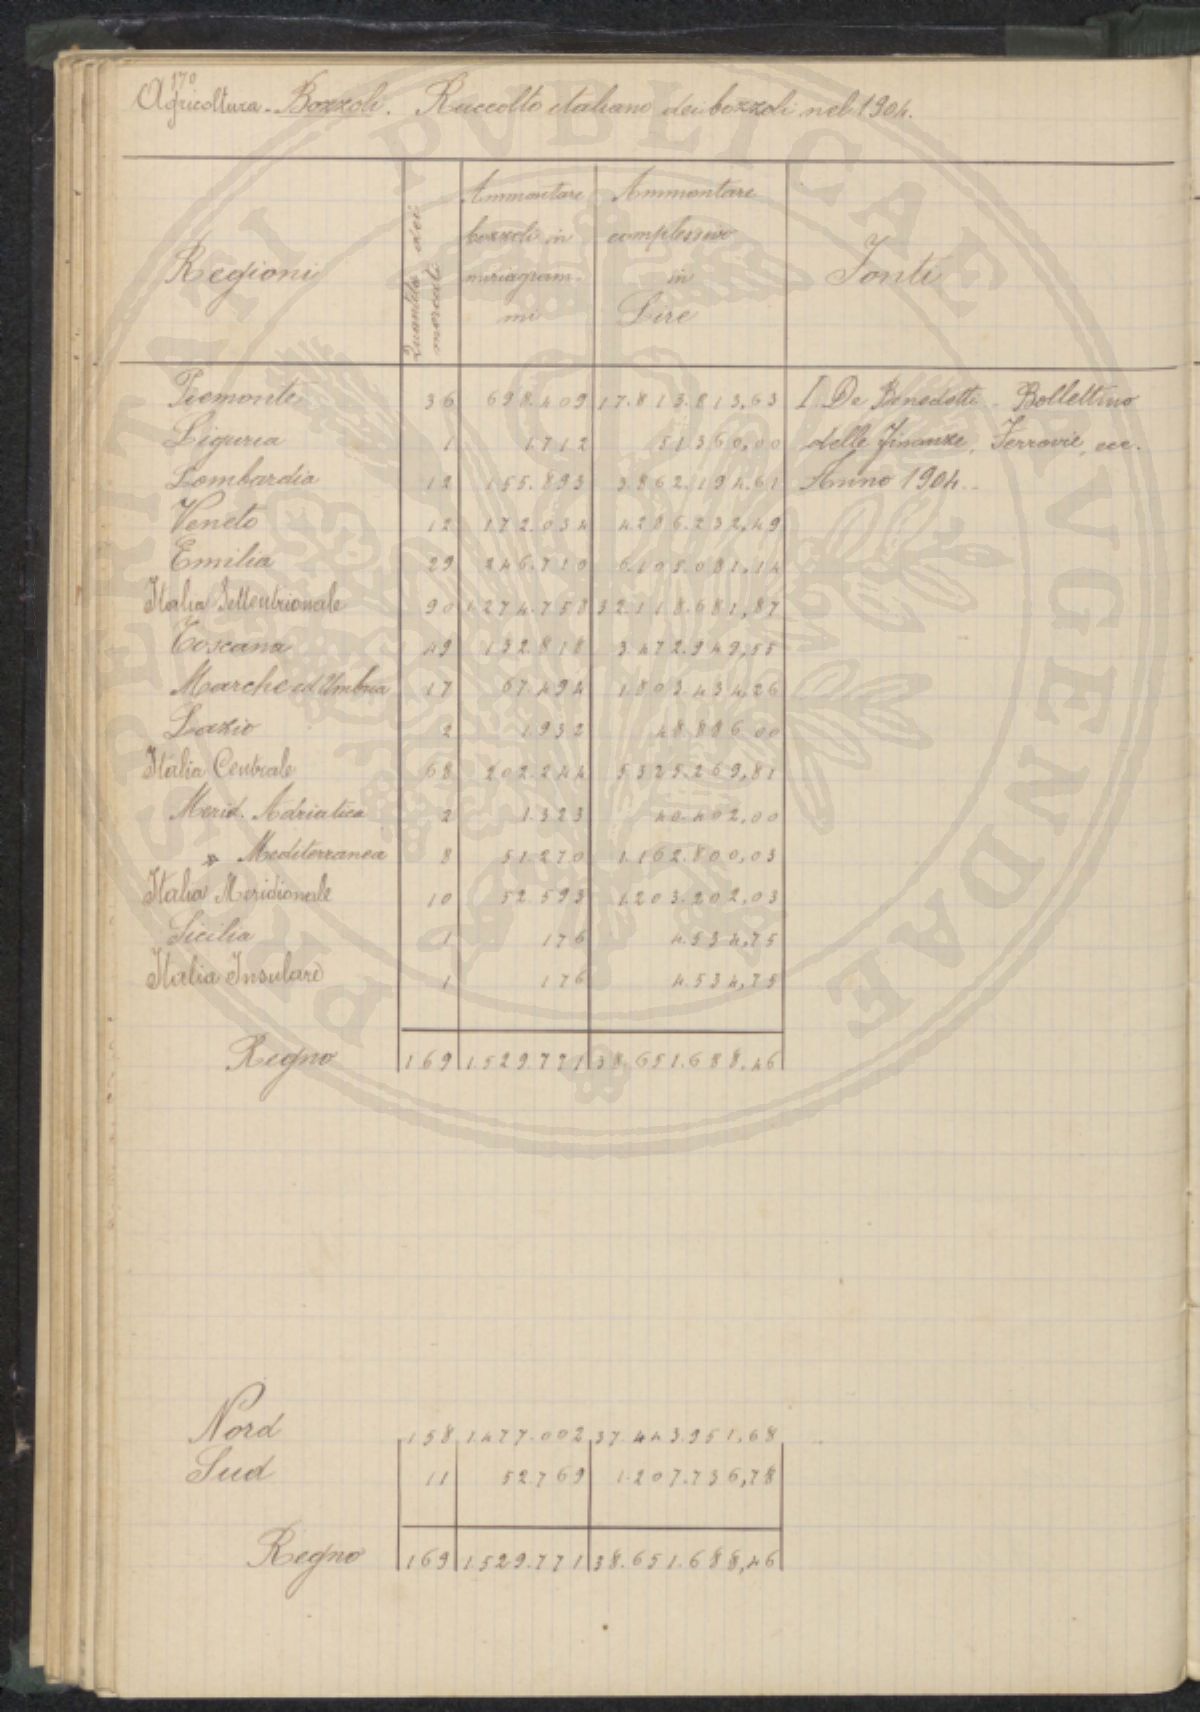 170
Agricoltura - Bozzoli. Raccolto italiano dei bozzoli nel 1904.
Regioni | Quantità dei mercati | Ammontare bozzoli in miriagrammi | Ammontare complessivo in Lire | Fonti
Piemonte 36 698.409 17.813.813,63 I. De Benedetti - Bollettino
Liguria 1 1.712 51.360,00 delle Finanze, Ferrovie, ecc.
Lombardia 12 155.893 3.862.194,61 Anno 1904.
Veneto 12 172.034 4.286.232,49
Emilia 29 246.710 6.105.081,14
Italia Settentrionale 90 1.274.758 32.118.681,87
Toscana 49 132.818 3.472.949,55
Marche ed Umbria 17 67.494 1.803.434,26
Lazio 2 1.932 48.886,00
Italia Centrale 68 202.244 5.325.269,81
Merid. Adriatica 2 1.323 40.402,00
" Mediterranea 8 51.270 1.162.800,03
Italia Meridionale 10 52.593 1.203.202,03
Sicilia 1 176 4.534,75
Italia Insulare 1 176 4.534,75
Regno 169 1.529.771 38.651.688,46
Nord 158 1.477.002 37.443.951,68
Sud 11 52.769 1.207.736,78
Regno 169 1.529.771 38.651.688,46
PROSPERITATI PVBLICAE AVGENDAE